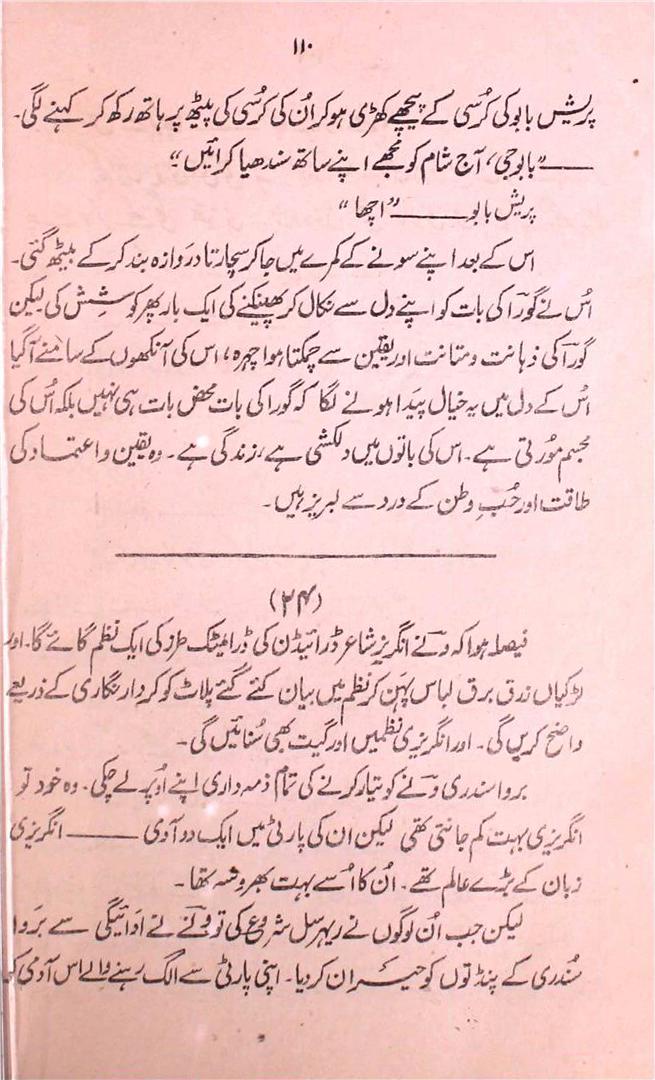 ۱۱۰
پریش بابو کی کرُسی کے پیچھے کھڑی ہو کر اُن کی کرُسی کی پیٹھ پر ہاتھ رکھ کر کہنے لگی۔
——"بابوجی، آج شام کو مجھے اپنے ساتھ سندھیا کرائیں"
پریش بابو——"اچھا"
اس کے بعد اپنے سونے کے کمرے میں جا کر سچارتا دروازہ بند کر کے بیٹھ گئی۔
اُس نے گورا کی بات کو اپنے دل سے نکال کر پھینکنے کی ایک بار پھر کوشِش کی لیکن
گورا کی ذہانت و متانت اور یقین سے چمکتا ہوا چہرہ، اس کی آنکھوں کے سامنے آگیا
اُس کے دل میں یہ خیال پیدا ہونے لگا کہ گورا کی بات محض بات ہی نہیں بلکہ اُس کی
مجسم مُورتی ہے۔ اس کی باتوں میں دلکشی ہے، زندگی ہے۔ وہ یقین و اعتماد کی
طاقت اور حُبِ وطن کے درد سے لبریز ہیں۔
(۲۴)
فیصلہ ہوا کہ ونے انگریز شاعر ڈرائیڈن کی ڈرامیٹک طرز کی ایک نظم گائے گا۔ اور
لڑکیاں زرق برق لباس پہن کر نظم میں بیان کئے گئے پلاٹ کو کردار نگاری کے ذریعے
واضح کریں گی۔ اور انگریزی نظمیں اور گیت بھی سُنائیں گی۔
بروا سندری ونے کو تیار کرنے کی تمام ذمہ داری اپنے اُوپر لے چکی۔ وہ خود تو
انگریزی بہت کم جانتی تھی لیکن ان کی پارٹی میں ایک دو آدمی —— انگریزی
زبان کے بڑے عالم تھے۔ اُن کا اُسے بہت بھروسہ تھا۔
لیکن جب اُن لوگوں نے ریہرسل شروع کی تو ونے نے ادائیگی سے بروا
سُندری کے پنڈتوں کو حیران کر دیا۔ اپنی پارٹی سے الگ رہنے والے اس آدمی کو